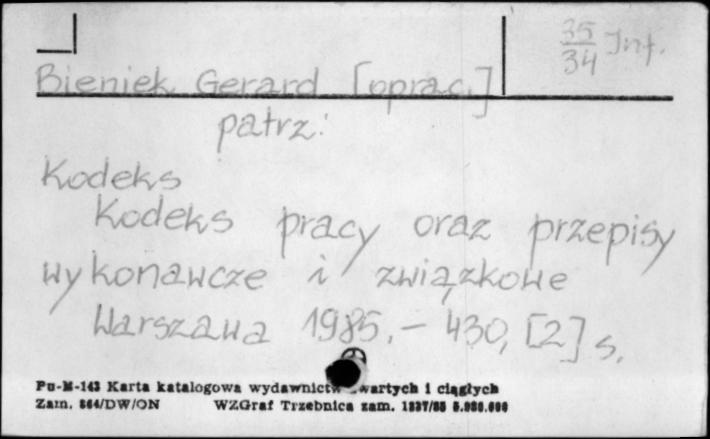 35/34 Inf.
Bieniek Gerard [oprac.]
patrz:
Kodeks
Kodeks pracy oraz przepisy
wykonawcze i związkowe
Warszawa 1985.- 430, [2] s.
Pu-M-143 Karta katalogowa wydawnictw zwartych i ciągłych
Zam. 864/DW/ON WZGraf Trzebnica zam.